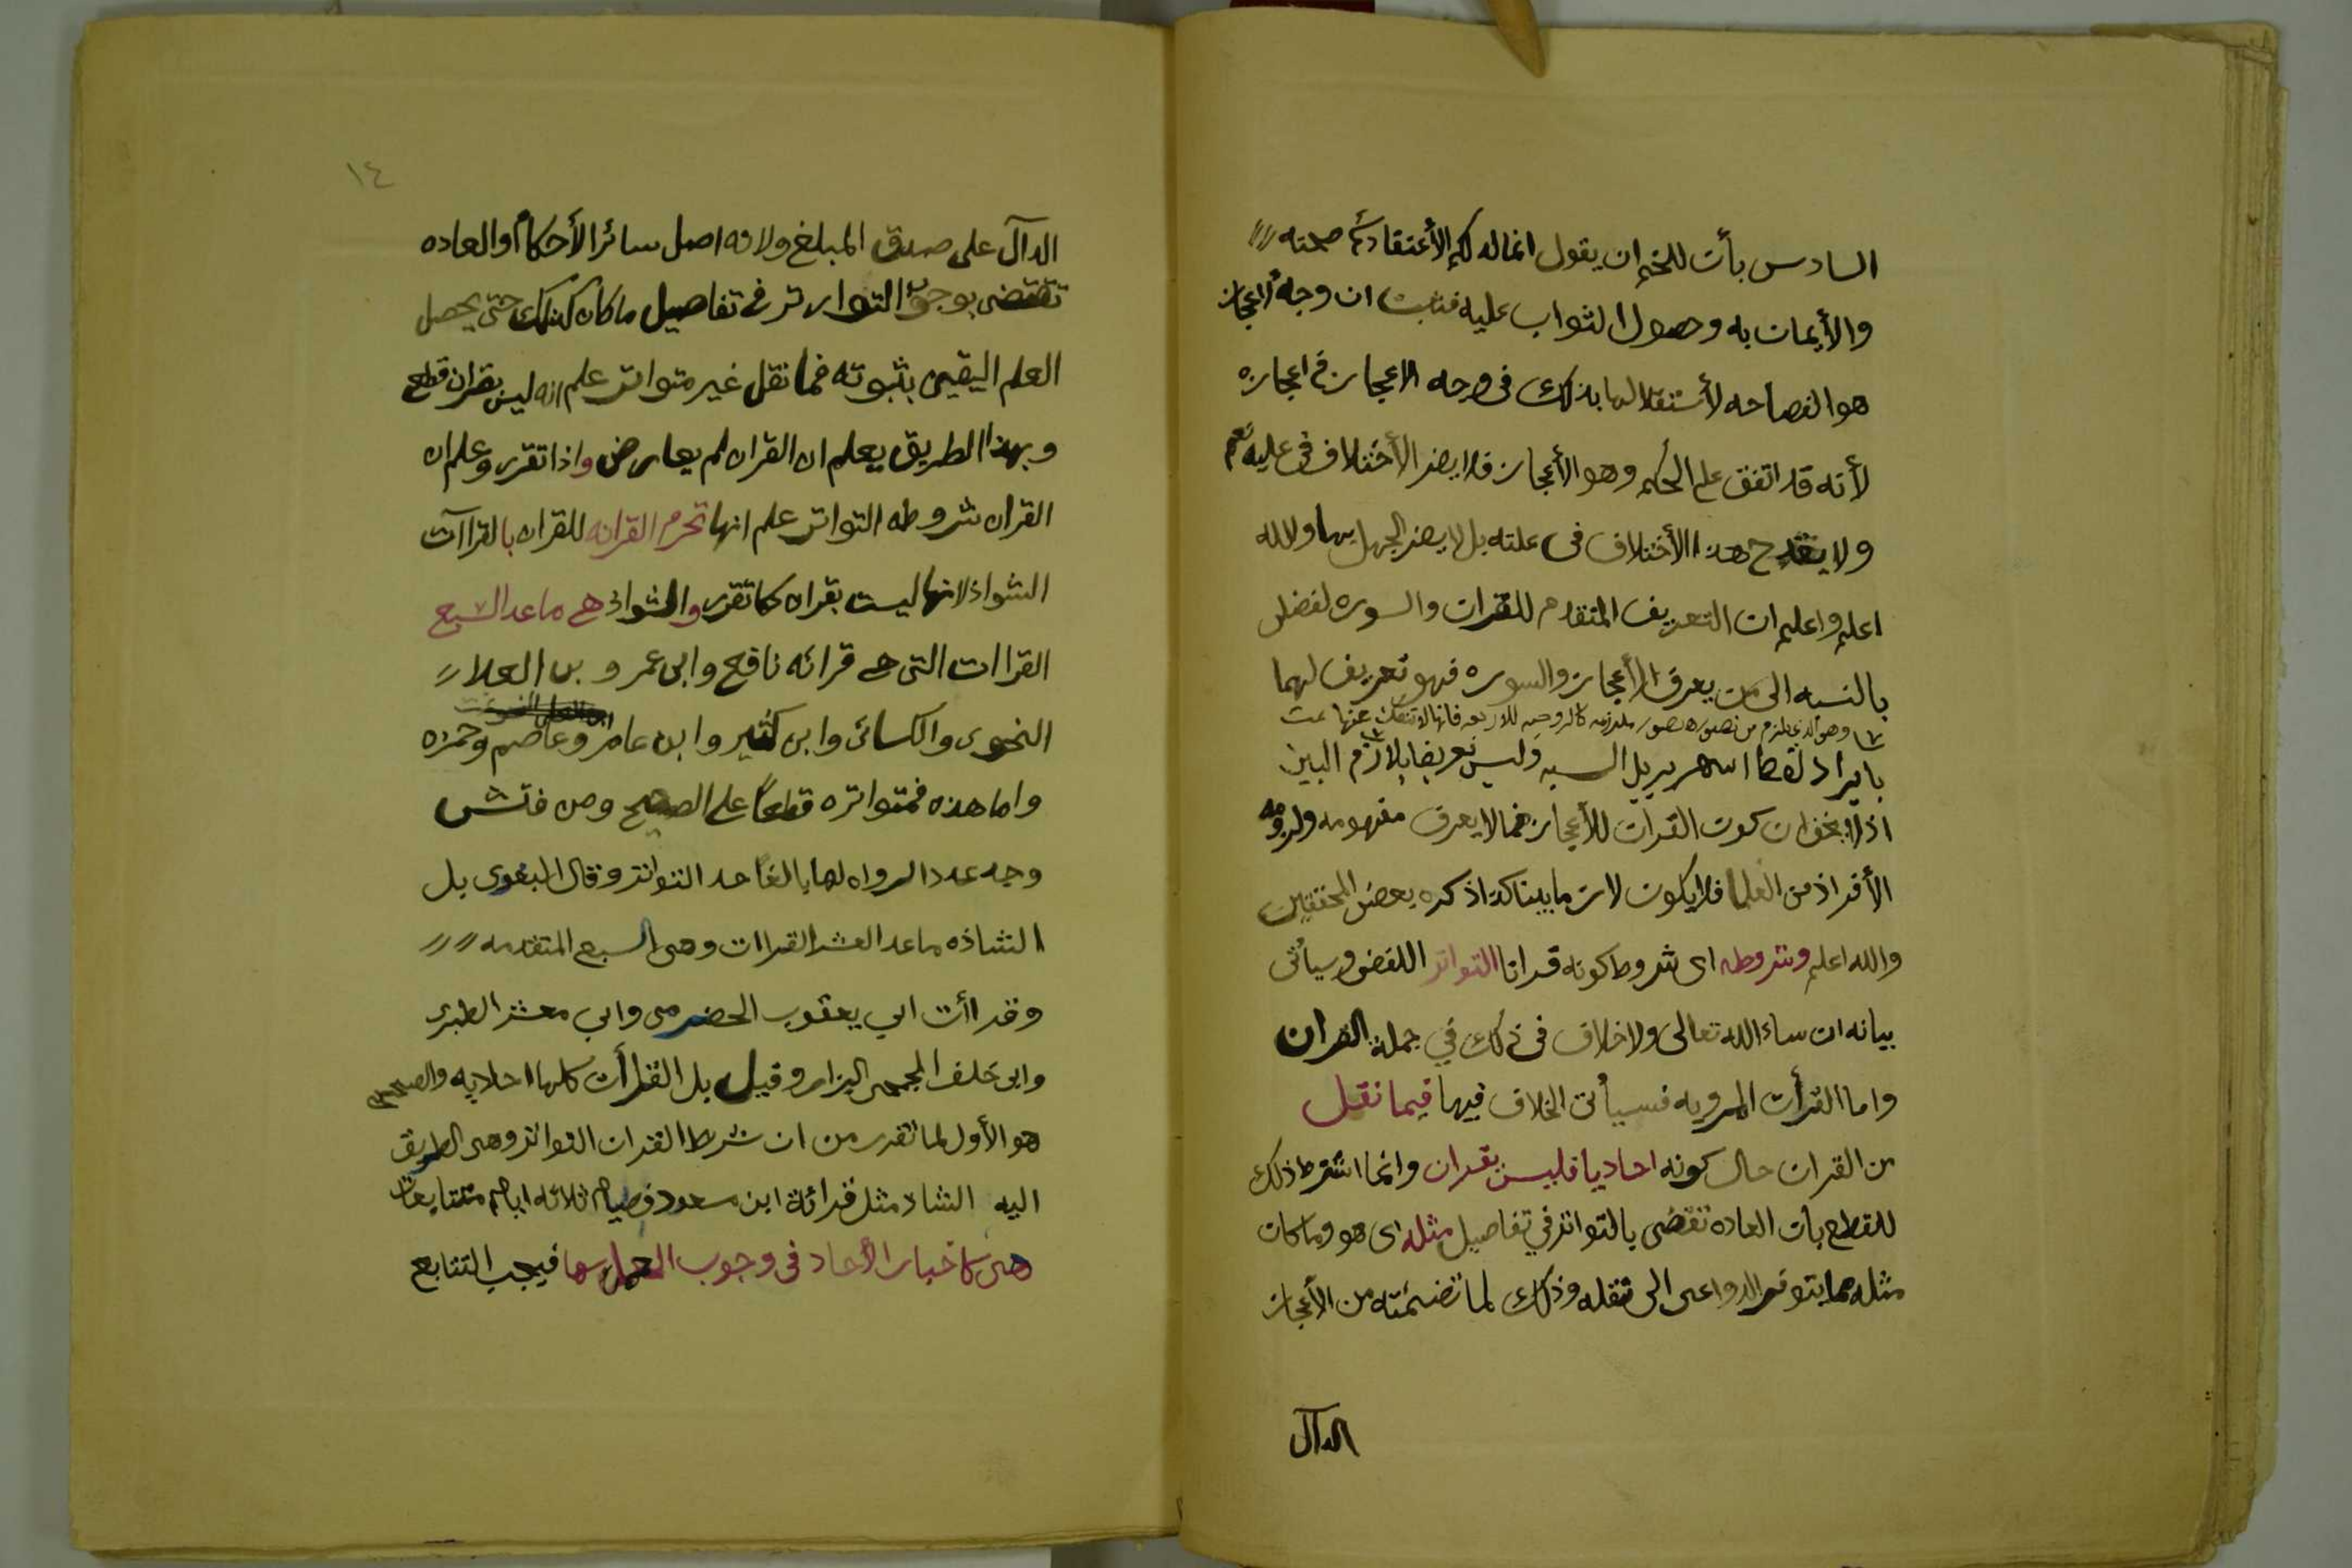 السادس بأن للخصم ان يقول انما له لاعتقاد صحته
والأيمان به وحصول الثواب عليه فثبت ان وجه اعجاز
هو الفصاحه لأستقلالها بذلك فى وجه الاعجاز فى اعجازه
لأنه قد اتفق على الحكم وهو الأعجاز فلا يضر الأختلاف فى عليه نعم
ولا يقدح هذا الأختلاف فى علته بل لا يضر الجهل بها والله
اعلم واعلم ان التعريف المتقدم للقران والسوره لفضلى
بالنسبه الى من يعرف الأعجاز والسوره فهو تعريف لهما
وهو الذى يلزم من تصور تصور ملزومه كالزوجيه للاربعه فانها لا تنفك عنها تمت
بايراد لفظ اشهر وليس تعريفا بلازم البين
اذ لا يخفى ان كون القران للأعجاز مما لا يعرف مفهومه ولزومه
الأفراد من العلما فلا يكون لازما بينا كذا ذكره بعض المحققين
والله اعلم وشروطه اى شروط كونه قرانا التواتر اللفضى وسيأتى
بيانه ان ساء الله تعالى ولا خلاف فى ذلك في جملة القران
واما القرأت المرويه فسيأتى الخلاف فيها فيما نقل
من القران حال كونه احاديا فليس بقران وانما اشترط ذلك
للقطع بأن العاده تقضى بالتواتر في تفاصيل مثله اى هو وما كان
مثله مما يتوفر الدواعى الى نقله وذلك لما تضمنته من الأعجاز
الدآل
١٤
الدآل على صدق المبلغ ولانه اصل سائر الأحكام والعاده
تقتضى بوجوب التواتر فى تفاصيل ما كان كذلك حتى يحصل
العلم اليقين بثبوته فما نقل غير متواتر علم انه ليس بقران قطع
وبهذا الطريق يعلم ان القران لم يعارض واذا تقرر وعلم ان
القران شروطه التواتر علم انها تحرم القرائه للقران بالقراآت
الشواذ لانها ليست بقران كما تقرر والشواذ هي ما عدا السبع
القراات التى هى قرائه نافع وابى عمرو بن العلا
النحوى والكسائى وابن كثير وابن عامر وعاصم وحمزه
واما هذه فمتواتره قطعاً على الصحيح ومن فتش
وجه عدد الرواه لها بالغا حد التواتر وقال البغوى بل
الشاذه ما عدا العشر القراات وهى السبع المتقدمه
وقراأت ابي يعقوب الحضرمى وابي معشر الطبرى
وابى خلف الجمحى البزار وقيل بل القرأت كلها احاديه والصحيح
هو الأول لما تقرر من ان شرط القران التواتر وهى الطريق
اليه الشاذ مثل قرائة ابن مسعود فصيام ثلاثه ايام متتابعات
هى كاخبار الأحاد فى وجوب العمل بها فيجب التتابع